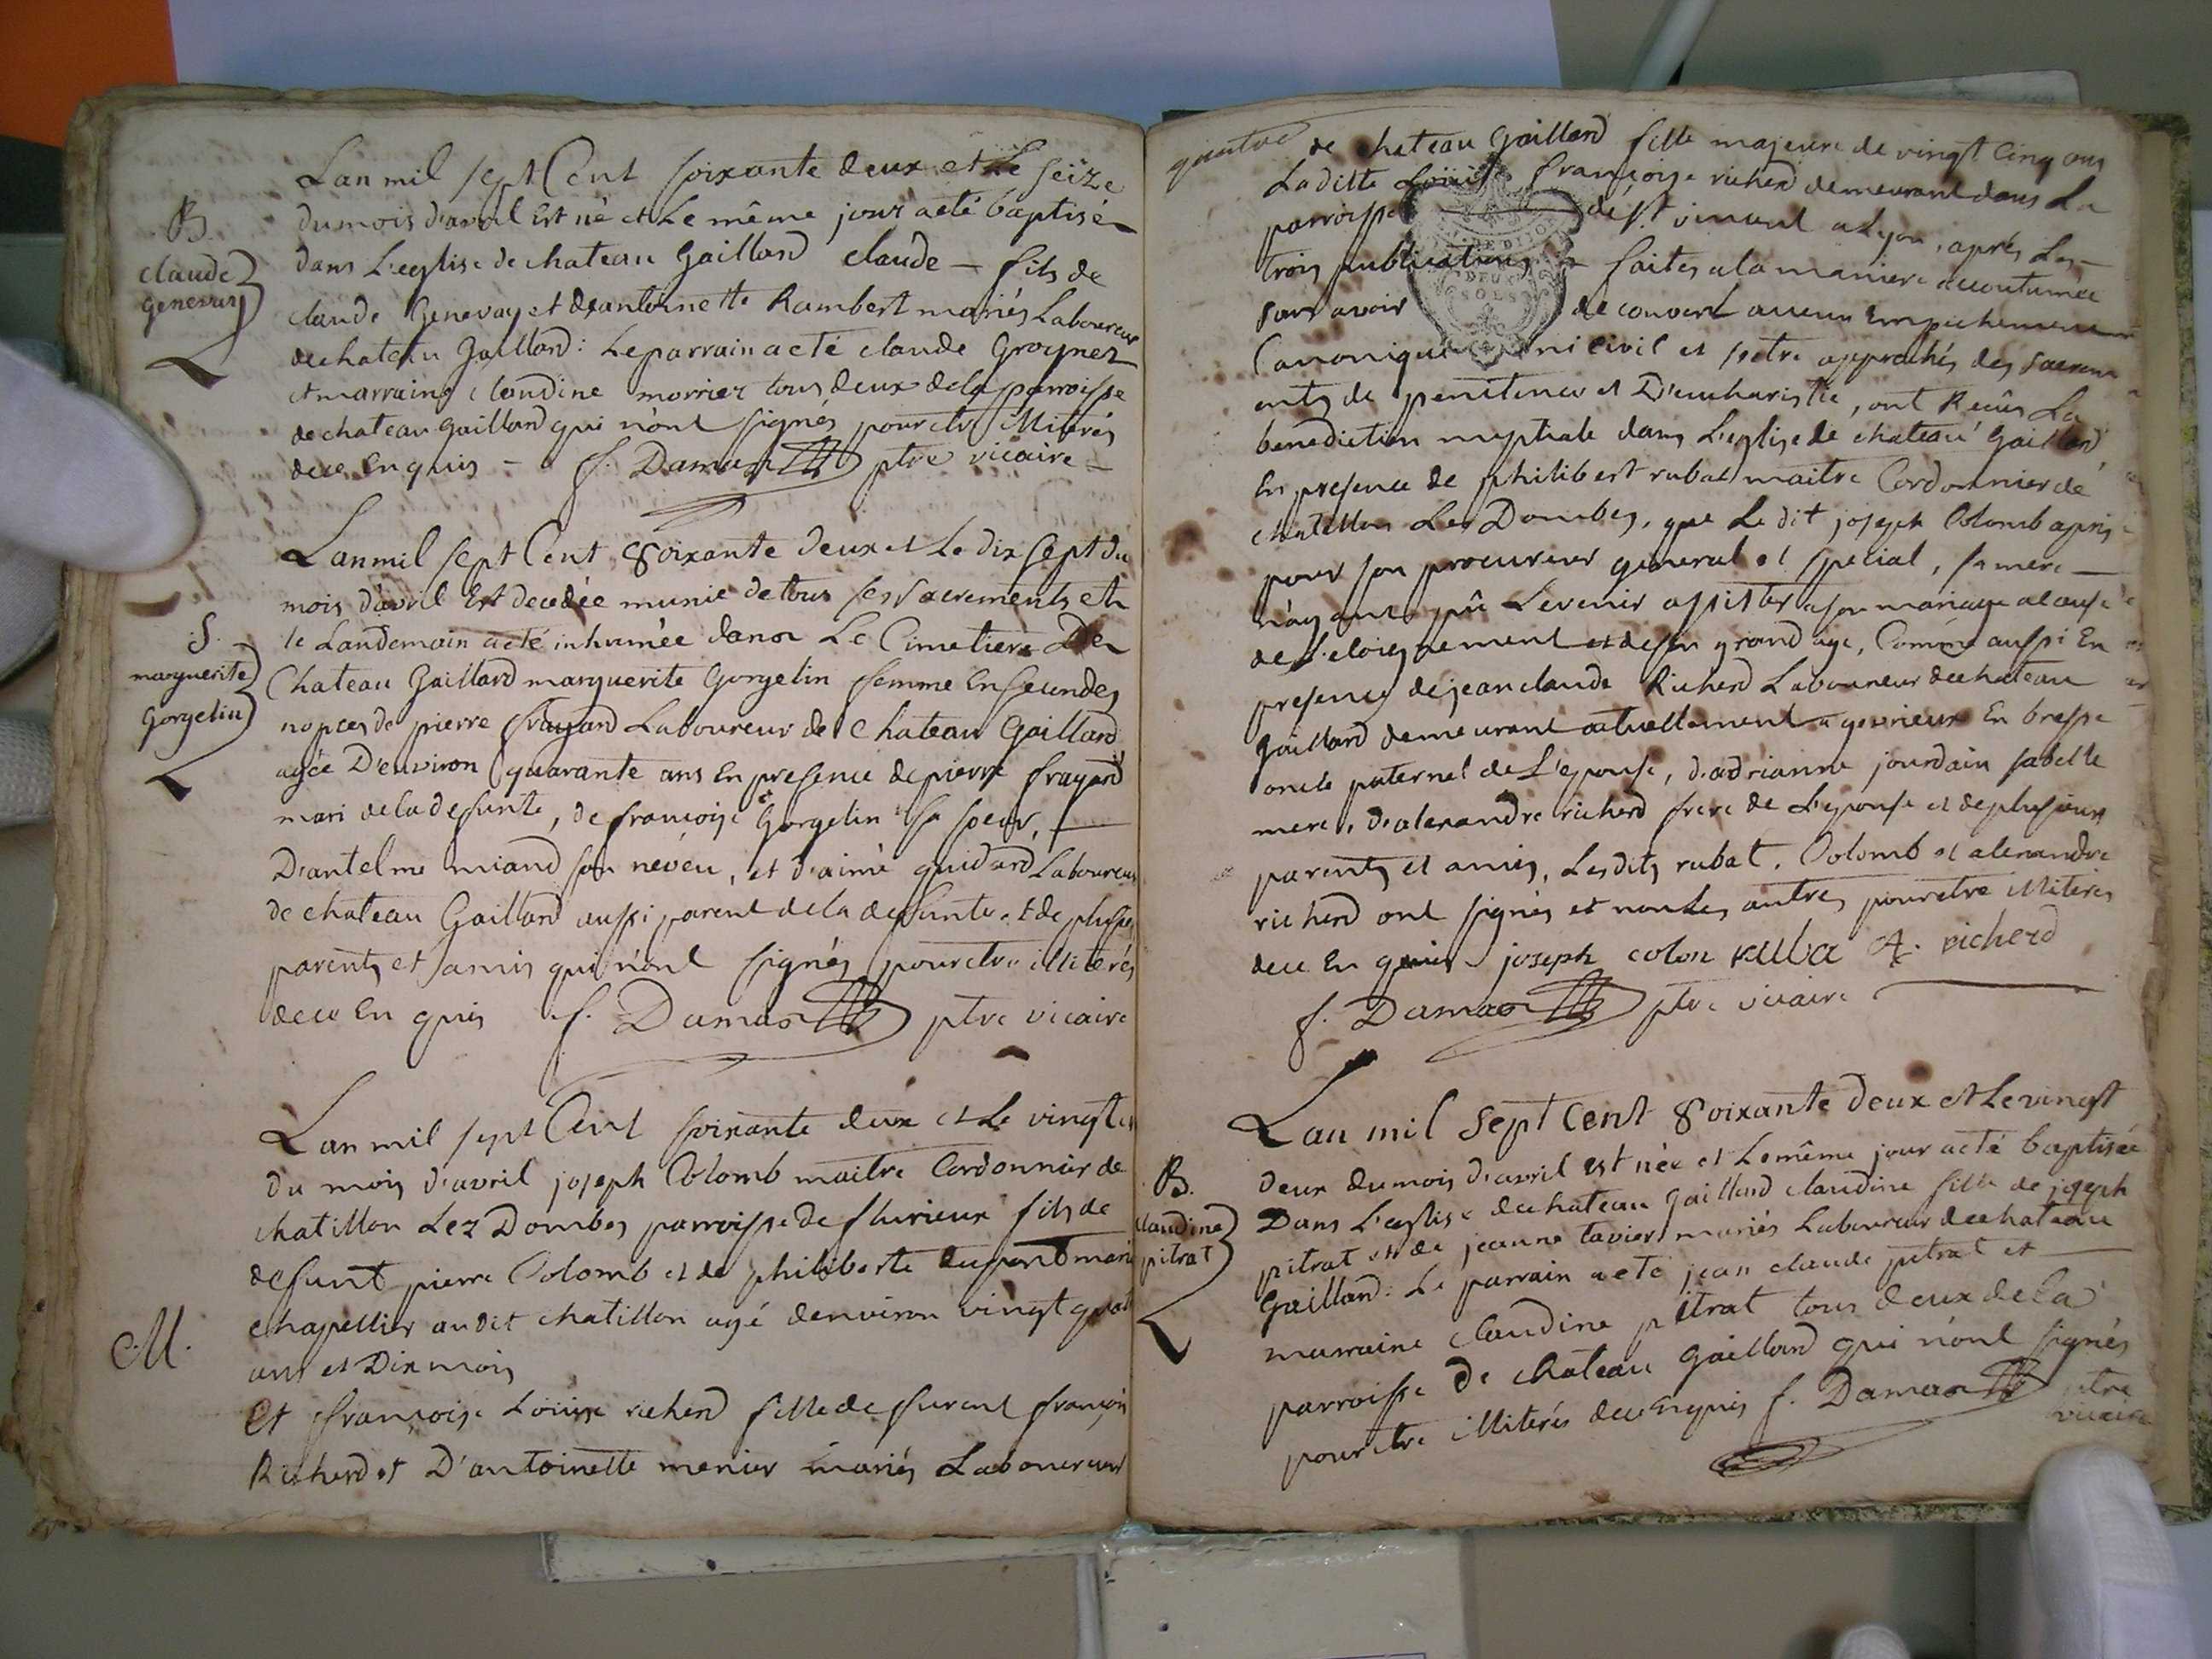 Lan mil sept Cent soixante deux et Le seize
du mois d'avril Est né et Le même jour a eté baptisé
dans L'eglise de chateau Gaillard claude - fils de
claude Genevay et d'antoinette Rambert mariés Laboureur
de chateau Gaillard: Le parrain a eté claude Groynez
et marraine claudine morrier tous deux de la parroisse
de chateau gaillard qui n'ont signés pour etre illiterés
de ce Enquis - f. Damas ptre vicaire -
B.
claude
genevay
Lan mil sept Cent Soixante deux et Le dix sept du
mois d'avril Est decedée munie de tous ses sacrements et
le Landemain a eté inhumée dans Le Cimetiere De
Chateau Gaillard marguerite Gorgelin femme En secondes
nopces de pierre frayard Laboureur de Chateau Gaillard
agée D'environ quarante ans En presence de pierre frayard
mari de la defunte, de françoise Gorgelin sa soeur,
D'antelme miand son neveu, et d'aimé guidard Laboureur
de chateau Gaillard aussi parent de la defunte et de plusrs
parents et amis qui n'ont signés pour etre illiterés
de ce En quis f. Damas ptre vicaire
S.
marguerite
Gorgelin
Lan mil sept Cent soixante deux et Le vingt
du mois d'avril joseph Colomb maitre Cordonnier de
chatillon Lez Dombes parroisse de flurieux fils de
defunt pierre Colomb et de philiberte dupont mari
chapellier au dit chatillon agé d'environ vingt quat
ans et Dix mois
Et françoise Louise richerd fille de furent françois
Richerd et D'antoinette menier mariés Laboureurs
M.
quatre
de chateau Gaillard fille majeure de vingt Cinq ans
La ditte Louise françoise richerd demeurant dans La
parroisse de St. vincent a Lyon, aprés Les
trois publications faites a la maniere accoutumée
sans avoir decouvert aucun Empechement
Canonique ni civil et s'etre approchés des sacrem
ents de penitence et D'eucharistie, ont Recûs La
benediction nuptiale dans L'eglise de chateau Gaillard
En presence de philibert rubat maitre Cordonnier de
chatillon Les Dombes, que Le dit joseph Colomb a pris
pour son procureur general et special, sa mere
n'ayant pû Levenir assister a son mariage a cause
de L'eloignement et de son grand age, Comme aussi En
presence de jean claude Richerd Laboureur de chateau
Gaillard demeurant actuellement a gevrieux En bresse
oncle paternel de L'epouse, d'adrianne jourdain sa belle
mere, d'alexandre richerd frere de L'epouse et de plusieurs
parents et amis, Lesdits rubat, Colomb et alexandre
richerd ont signés et non Les autres pour etre illiterés
de ce En quis joseph colon ruba A. richerd
f. Damas ptre vicaire
Lan mil sept Cent Soixante deux et Le vingt
deux du mois d'avril est née et Le même jour a eté baptisée
Dans L'eglise de chateau Gaillard claudine fille de joseph
pitrat et de jeanne tavier mariés Laboureur de chateau
Gaillard: Le parrain a eté jean claude pitrat et
marraine claudine pitrat tous deux de la
parroisse de chateau Gaillard qui n'ont signés
pour etre illiterés de ce Enquis f. Damas ptre
vicaire
B.
claudine
pitrat